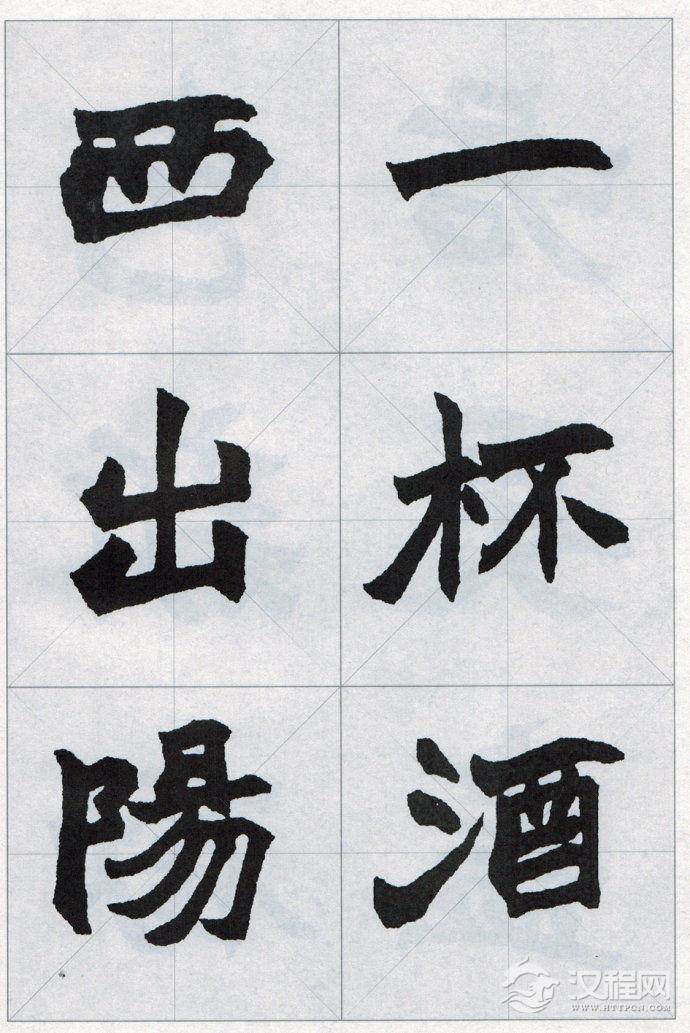 一杯酒
西出陽
汉程网
WWW.HTTPCN.COM